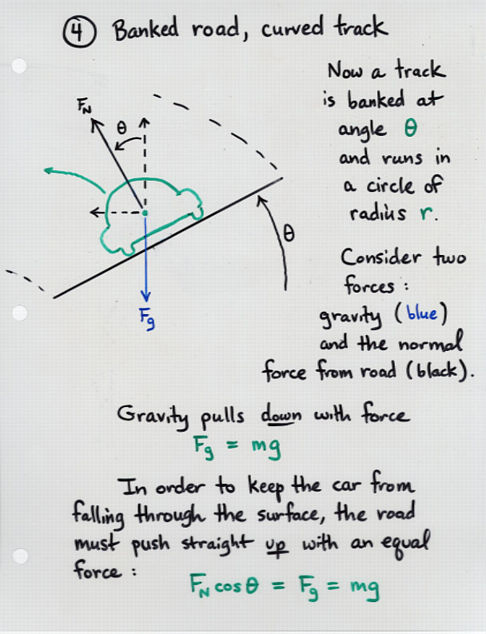 ④ Banked road, curved track
Now a track
is banked at
angle θ
and runs in
a circle of
radius r.
F_N
θ
θ
F_g
Consider two
forces :
gravity (blue)
and the normal
force from road (black).
Gravity pulls down with force
F_g = mg
In order to keep the car from
falling through the surface, the road
must push straight up with an equal
force :
F_N cos θ = F_g = mg